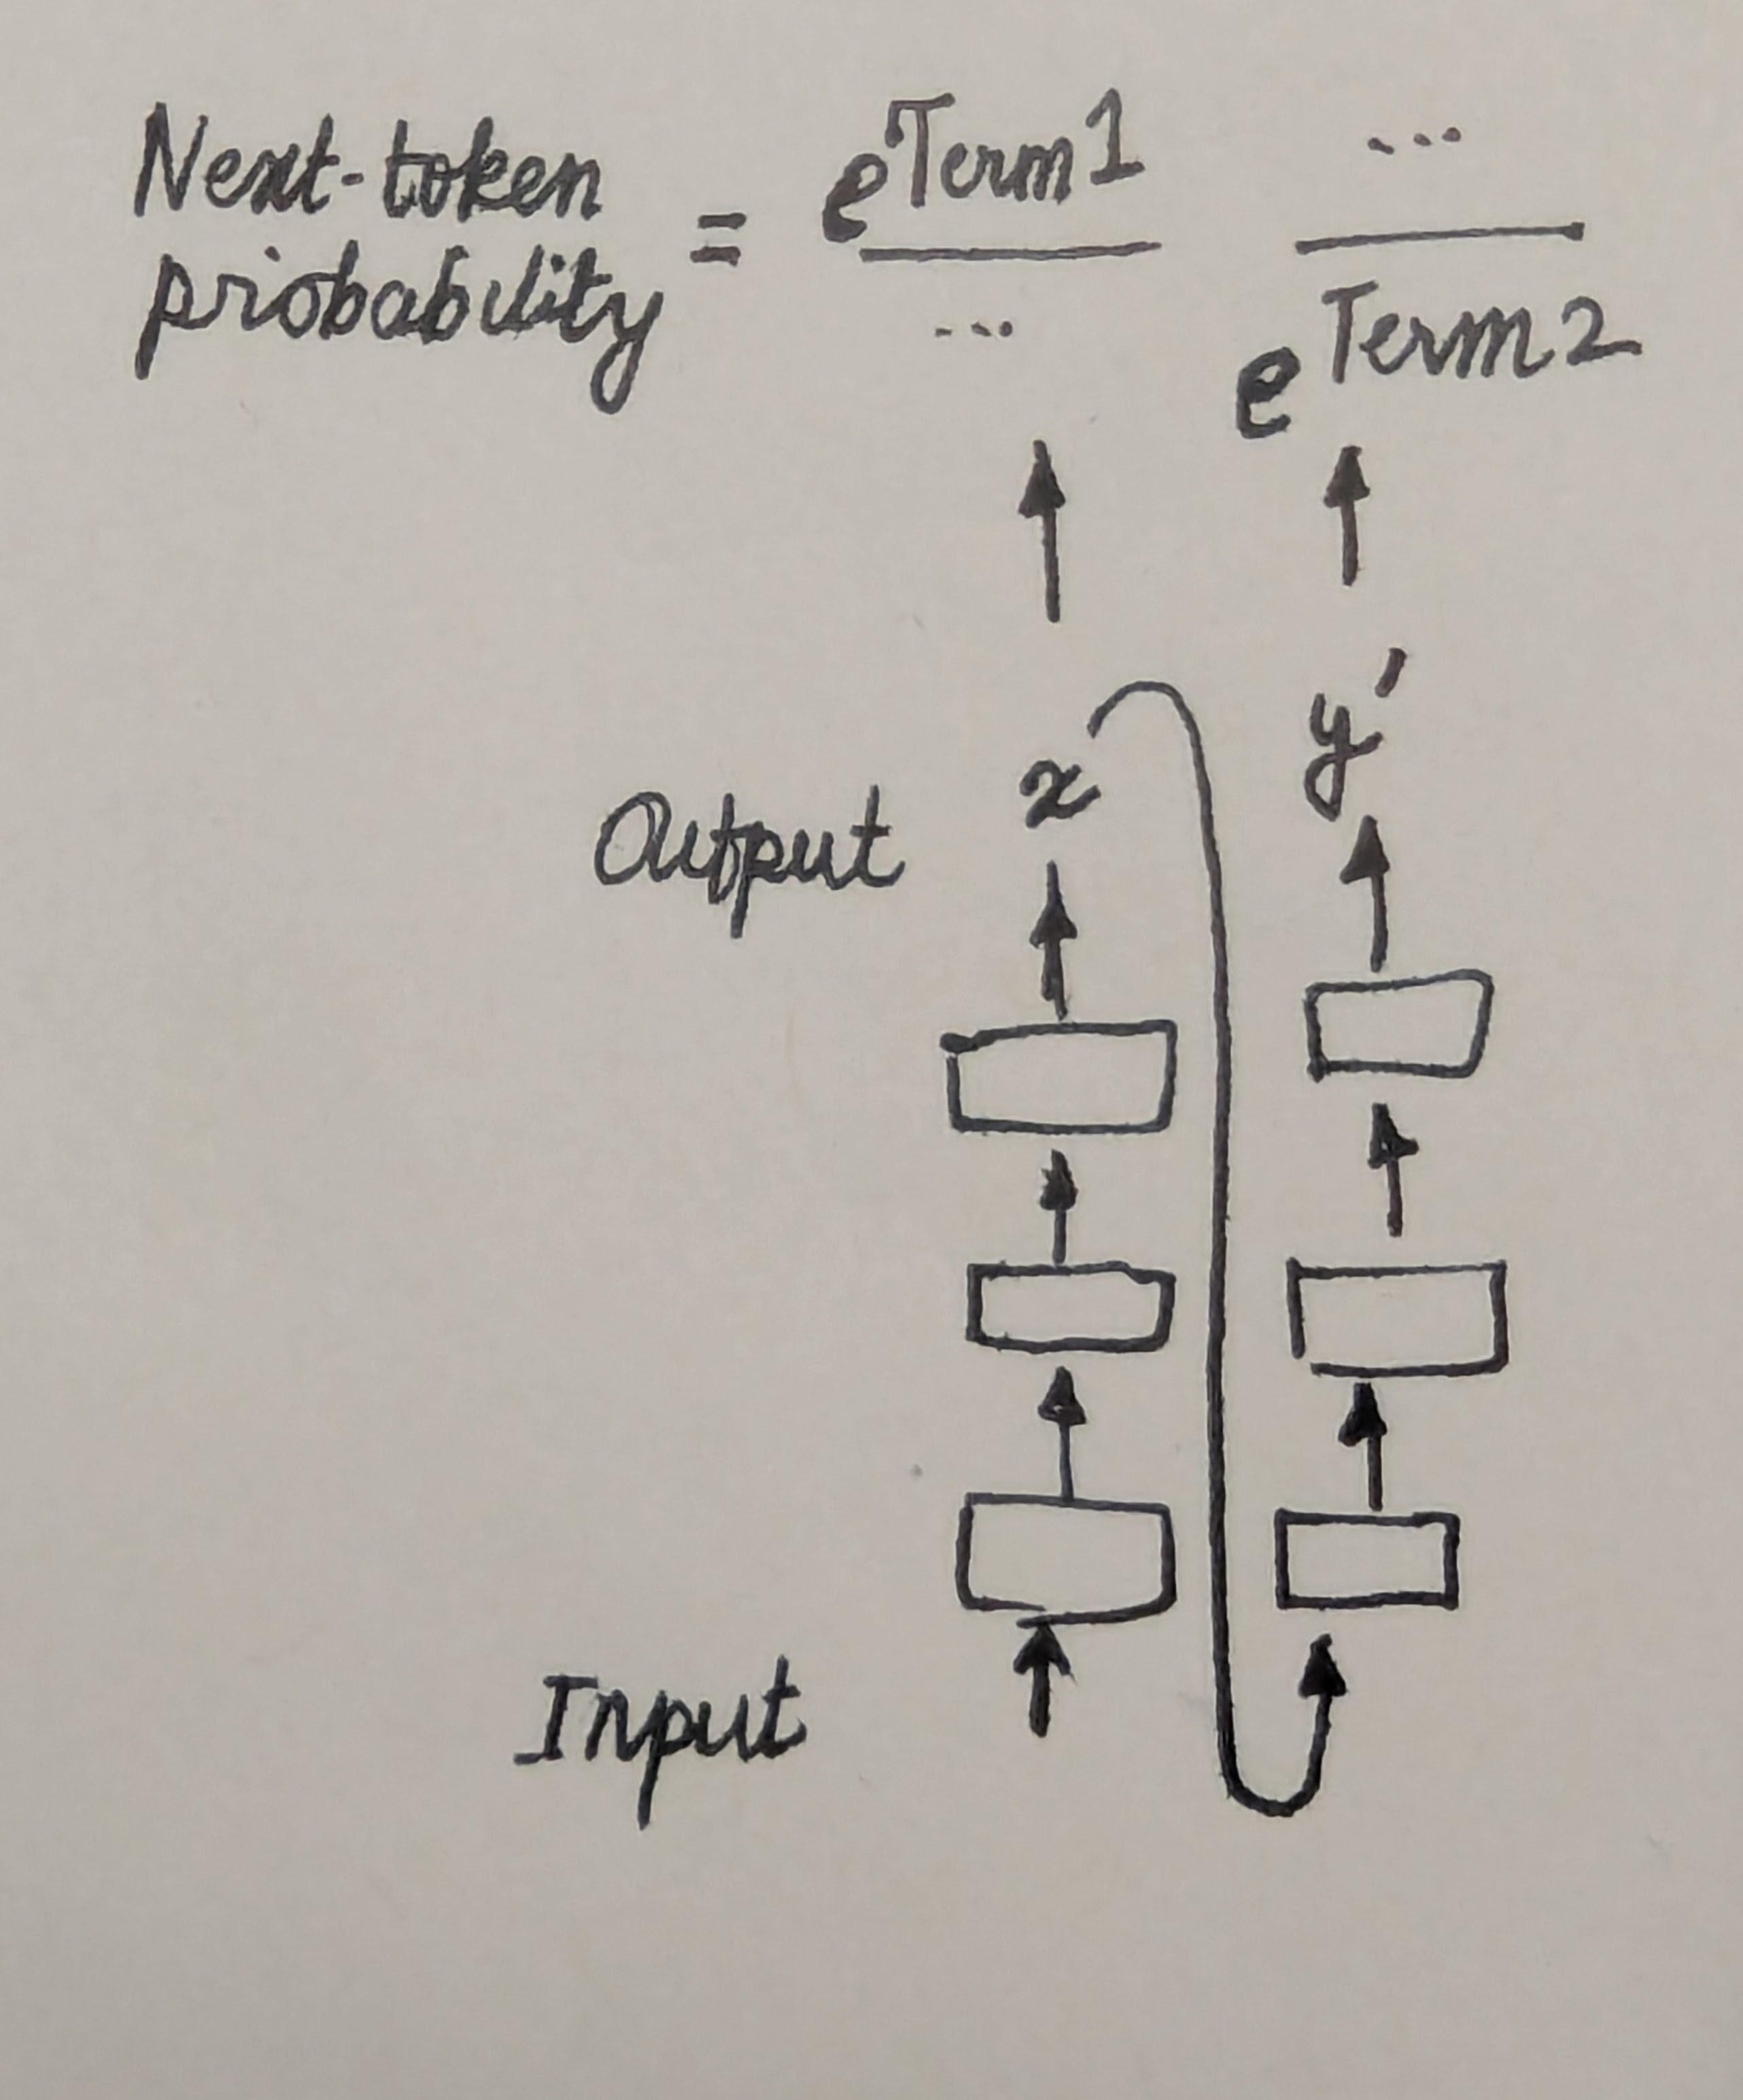 Next-token
probability
=
eTerm1
...
...
eTerm2
x
y′
Output
Input